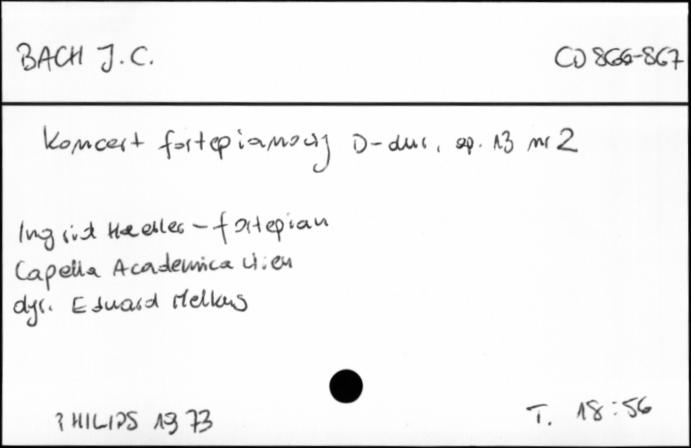 BACH J.C.
CD 866-867
Koncert fortepianowy D-dur, op. 13 nr 2
Ingrid Haebler - fortepian
Capella Academica Wien
dyr. Eduard Melkus
PHILIPS 1973
T. 18:56